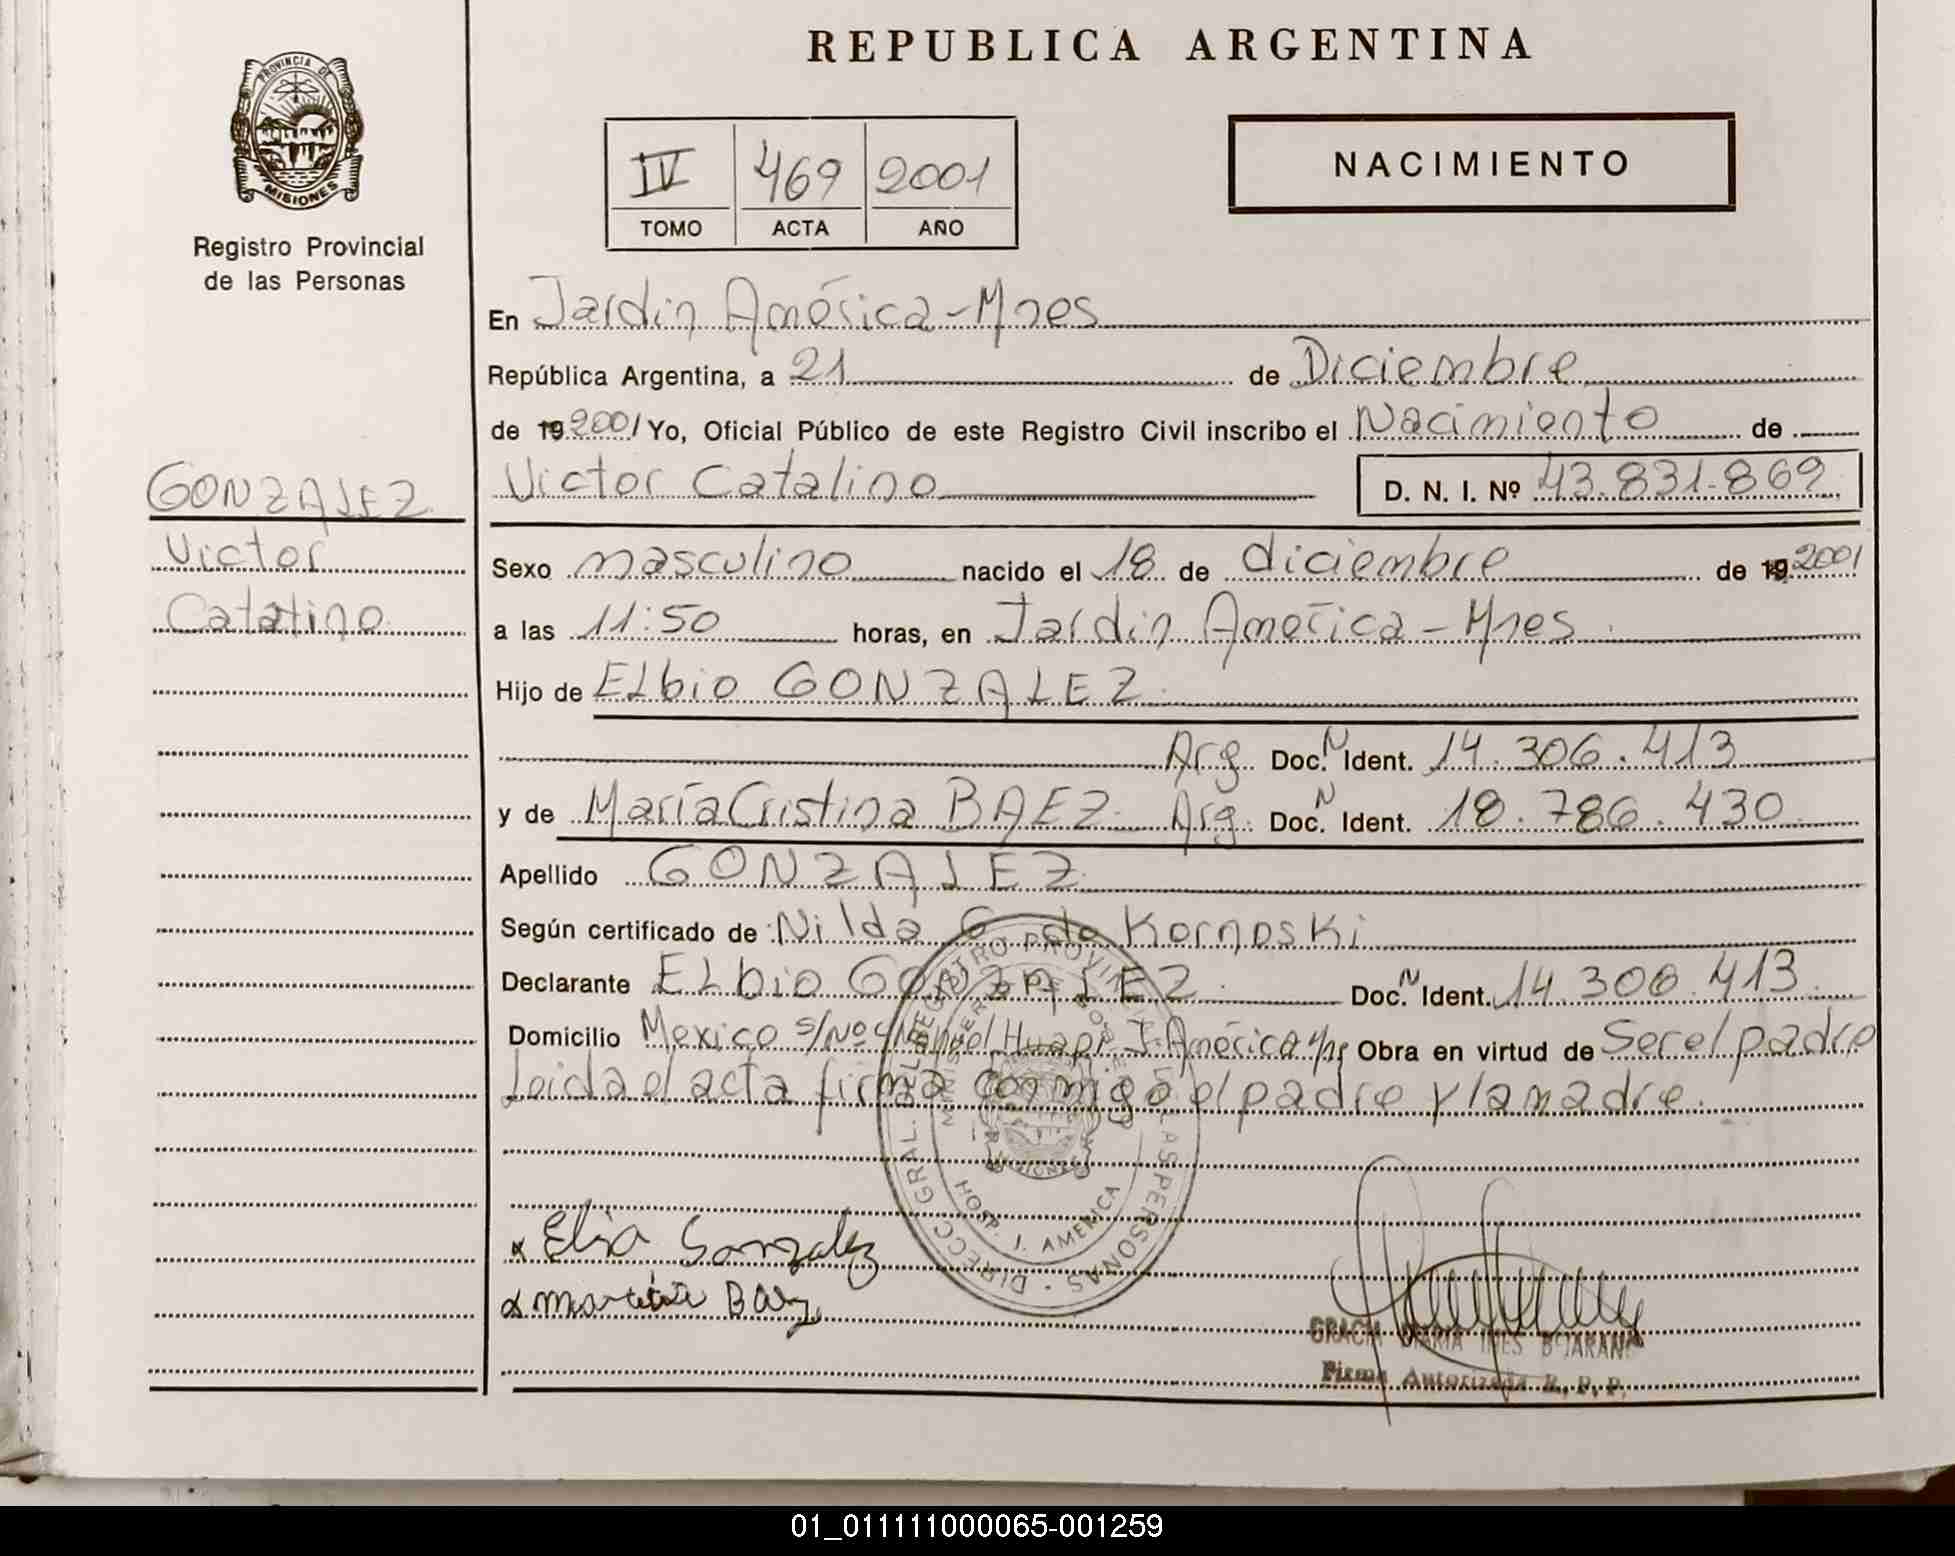 REPUBLICA ARGENTINA
PROVINCIA DE
MISIONES
Registro Provincial
de las Personas
IV 469 2001
TOMO ACTA AÑO
NACIMIENTO
En Jardin América-Mnes
República Argentina, a 21 de Diciembre
de 19 2001 Yo, Oficial Público de este Registro Civil inscribo el Nacimiento de
Victor Catalino D. N. I. Nº 43.831.869
GONZALEZ
Victor
Catalino
Sexo masculino nacido el 18 de diciembre de 19 2001
a las 11:50 horas, en Jardin América-Mnes.
Hijo de ELbio GONZALEZ.
Arg Doc. N Ident. 14.306.413
y de María Cristina BAEZ. Arg. Doc. N Ident. 18.786.430
Apellido GONZALEZ
Según certificado de Nilda G de Kornoski
Declarante ELbio GONZALEZ. Doc. N Ident. 14.306.413.
Domicilio Mexico s/Nº Nahuel Huapi J. América Obra en virtud de Ser el padre
Leida el acta firma conmigo el padre y la madre.
DIRECC. GRAL. DEL REGISTRO PROVINCIAL DE LAS PERSONAS
HOSP. J. AMERICA
x Elio Gonzalez
x Baez
GRACIA MARIA INES BEJARANO
Firma Autorizada R. P. P.
01_011111000065-001259